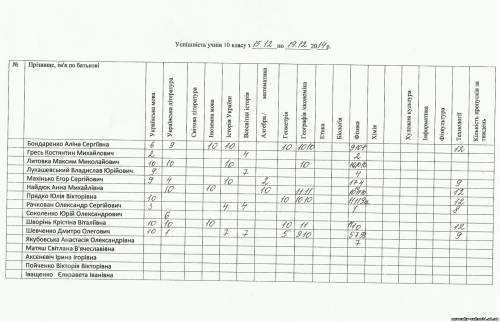 Успішність учнів 10 класу з 15.12 по 19.12 2014р.
№ Прізвище, ім'я по батькові Українська мова Українська література Світова література Іноземна мова Історія України Всесвітня історія Алгебра / математика Геометрія Географія /економіка Етика Біологія Фізика Хімія Художня культура Інформатика Фізкультура Технології Кількість пропусків за тиждень
Бондаренко Аліна Сергіївна 6 9 10 10 10 10 10 12
Гресь Костянтин Михайлович 2 4 2
Литовка Максим Миколайович 10 10 10 10
Лукашевський Владислав Юрійович 9 7 4
Махінько Егор Сергійович 9 4 10 2 9
Найдюк Анна Михайлівна 10 10 10 11 11 12
Предко Юлія Вікторівна 10 10 10 10 12
Рачкован Олександр Сергійович 3 4 4 1 8
Соколенко Юрій Олександрович 6
Шворінь Крістіна Віталіївна 10 10 10 10 11 10 12
Шевченко Дмитро Олегович 10 1 7 7 5 9 10 9
Якубовська Анастасія Олександрівна 7
Матяш Світлана В'ячеславівна
Аксеневіч Ірина Ігорівна
Пойченко Вікторія Вікторівна
Іващенко Єлизавета Іванівна